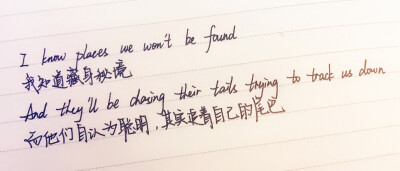 I know places we won't be found
我知道藏身秘境
And they'll be chasing their tails trying to track us down
而他们自认为聪明，其实追着自己的尾巴